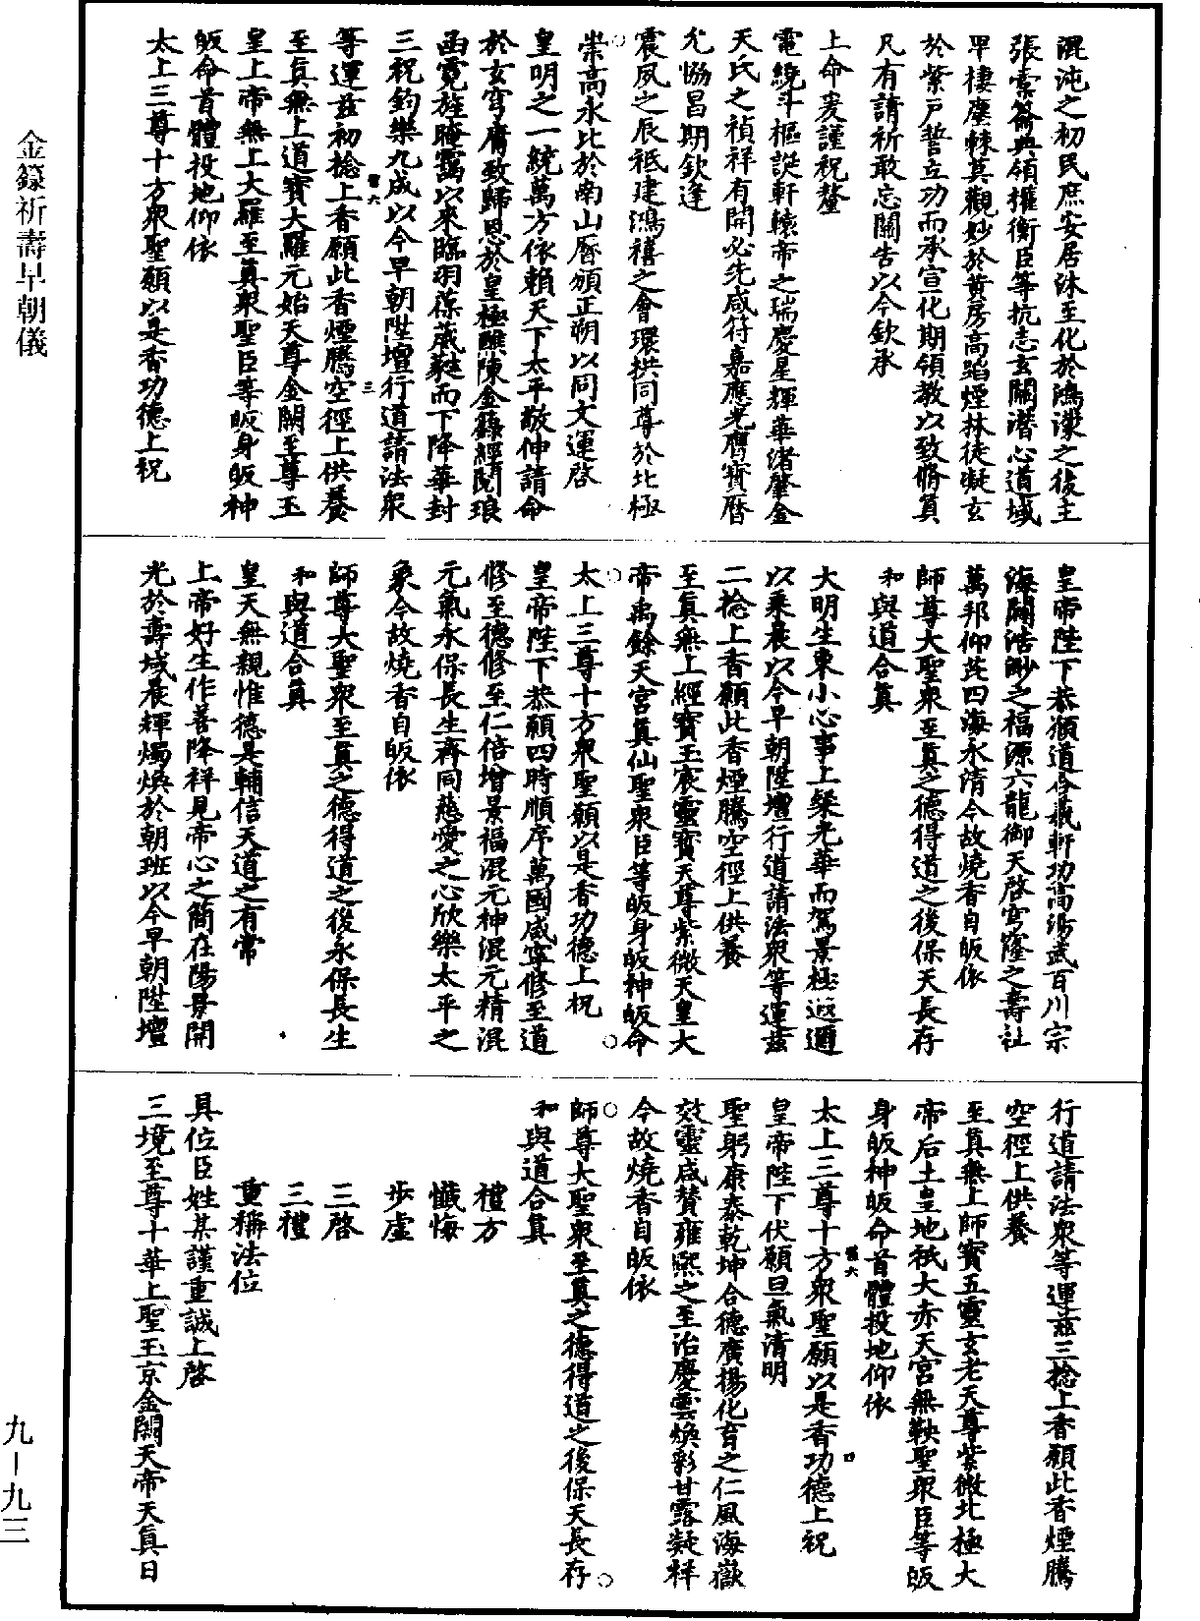 混沌之初民庶安居沐至化於鴻濛之後主
張橐籥典領權衡臣等抗志玄關潛心道域
早棲塵棘莫觀妙於黃房高蹈煙林徒凝玄
於紫戸誓立功而承宣化期領教以致脩負
凡有請祈敢忘關告以今欽承
上命爰謹祝釐
電繞斗樞誕軒轅帝之瑞慶星輝華渚肇金
天氏之禎祥有開必先咸符嘉應光膺寳曆
允恊昌期欽逢
震夙之辰祇建鴻禧之會環拱同尊於北極
崇高永比於南山曆頒正朔以同文運啓
皇明之一統萬方依賴天下太平敬伸請命
於玄穹庸致歸恩於皇極醮陳金籙經閱琅
函霓旌晻靄以來臨羽葆葳蕤而下降華封
三祝鈞樂九成以今早朝陞壇行道請法衆
等運兹初捻上香願此香煙騰空徑上供養
至真無上道寳大羅元始天尊金闕至尊玉
皇上帝無上大羅至真衆聖臣等皈身皈神
皈命首體投地仰依
太上三尊十方衆聖願以是香功德上祝
皇帝陛下恭願道合羲軒功高湯武百川宗
海闢浩渺之福源六龍御天啓穹窿之壽社
萬邦仰芘四海永清今故燒香自皈依
師尊大聖衆至真之德得道之後保天長存
和與道合真
大明生東小心事上粲光華而駕景極遐邇
以乘晨以今早朝陞壇行道請法衆等運兹
二捻上香願此香煙騰空徑上供養
至真無上經寳玉宸靈寳天尊紫微天皇大
帝禹餘天宮真仙聖衆臣等皈身皈神皈命
太上三尊十方衆聖願以是香功德上祝
皇帝陛下恭願四時順序萬國咸寧修至道
修至德修至仁倍增景福混元神混元精混
元氣永保長生齊同慈愛之心欣樂太平之
象今故燒香自皈依
師尊大聖衆至真之德得道之後永保長生
和與道合真
皇天無親惟德是輔信天道之有常
上帝好生作善降祥見帝心之簡在陽昇開
光於壽域晨輝燭煥於朝班以今早朝陞壇
行道請法衆等運兹三捻上香願此香煙騰
空徑上供養
至真無上師寳五靈玄老天尊紫微北極大
帝后土皇地祇大赤天宮無鞅聖衆臣等皈
身皈神皈命首體投地仰依
太上三尊十方衆聖願以是香功德上祝
皇帝陛下伏願旦氣清明
聖躬康泰乾坤合德廣揚化育之仁風海嶽
效靈咸贊雍熙之至治慶雲煥彩甘露凝祥
今故燒香自皈依
師尊大聖衆至真之德得道之後保天長存
和與道合真
禮方
懺悔
步虛
三啓
三禮
重稱法位
具位臣姓某謹重誠上啓
三境至尊十華上聖玉京金闕天帝天真日
金籙祈壽早朝儀
九-九三